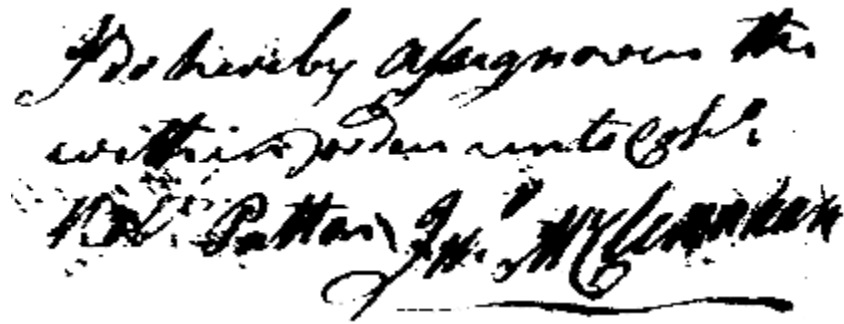 I do hereby assign over the
within order unto Colo
Patton Jno McClenachan